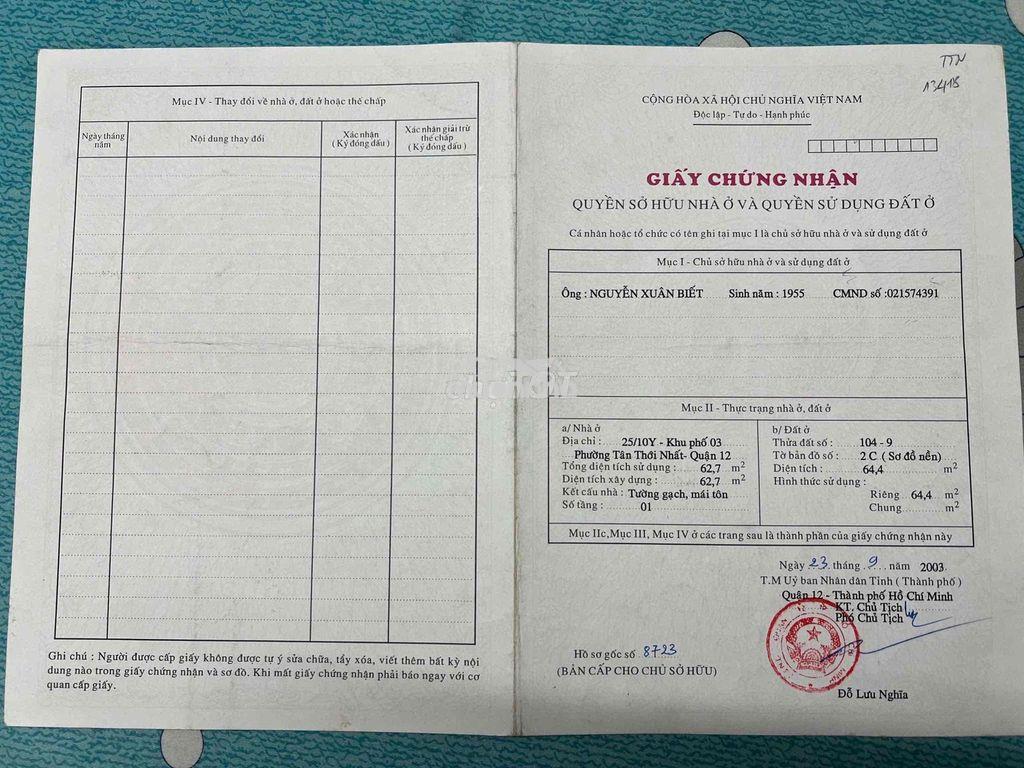 Mục IV - Thay đổi về nhà ở, đất ở hoặc thế chấp
Ngày tháng năm
Nội dung thay đổi
Xác nhận
( Ký đóng dấu )
Xác nhận giải trừ thế chấp
( Ký đóng dấu )
Ghi chú : Người được cấp giấy không được tự ý sửa chữa, tẩy xóa, viết thêm bất kỳ nội
dung nào trong giấy chứng nhận và sơ đồ. Khi mất giấy chứng nhận phải báo ngay với cơ
quan cấp giấy.
chợTỐT
TTN
13418
CỘNG HÒA XÃ HỘI CHỦ NGHĨA VIỆT NAM
Độc lập - Tự do - Hạnh phúc
GIẤY CHỨNG NHẬN
QUYỀN SỞ HỮU NHÀ Ở VÀ QUYỀN SỬ DỤNG ĐẤT Ở
Cá nhân hoặc tổ chức có tên ghi tại mục I là chủ sở hữu nhà ở và sử dụng đất ở
Mục I - Chủ sở hữu nhà ở và sử dụng đất ở
Ông : NGUYỄN XUÂN BIẾT Sinh năm : 1955 CMND số :021574391
Mục II - Thực trạng nhà ở, đất ở
a/ Nhà ở
Địa chỉ : 25/10Y - Khu phố 03
Phường Tân Thới Nhất- Quận 12
Tổng diện tích sử dụng : 62,7 m2
Diện tích xây dựng : 62,7 m2
Kết cấu nhà : Tường gạch, mái tôn
Số tầng : 01
b/ Đất ở
Thửa đất số : 104 - 9
Tờ bản đồ số : 2 C ( Sơ đồ nền)
Diện tích : 64,4 m2
Hình thức sử dụng :
Riêng 64,4 m2
Chung m2
Mục IIc,Mục III, Mục IV ở các trang sau là thành phần của giấy chứng nhận này
Ngày 23 tháng 9 năm 2003
T.M Uỷ ban Nhân dân Tỉnh ( Thành phố )
Quận 12 - Thành phố Hồ Chí Minh
KT. Chủ Tịch
Phó Chủ Tịch
Hồ sơ gốc số 8723
(BẢN CẤP CHO CHỦ SỞ HỮU)
Đỗ Lưu Nghĩa